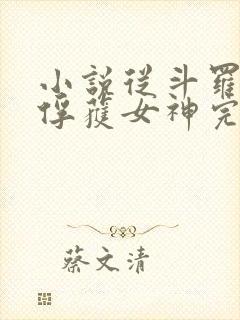 小說從斗羅
俘獲女神完
蔡文清